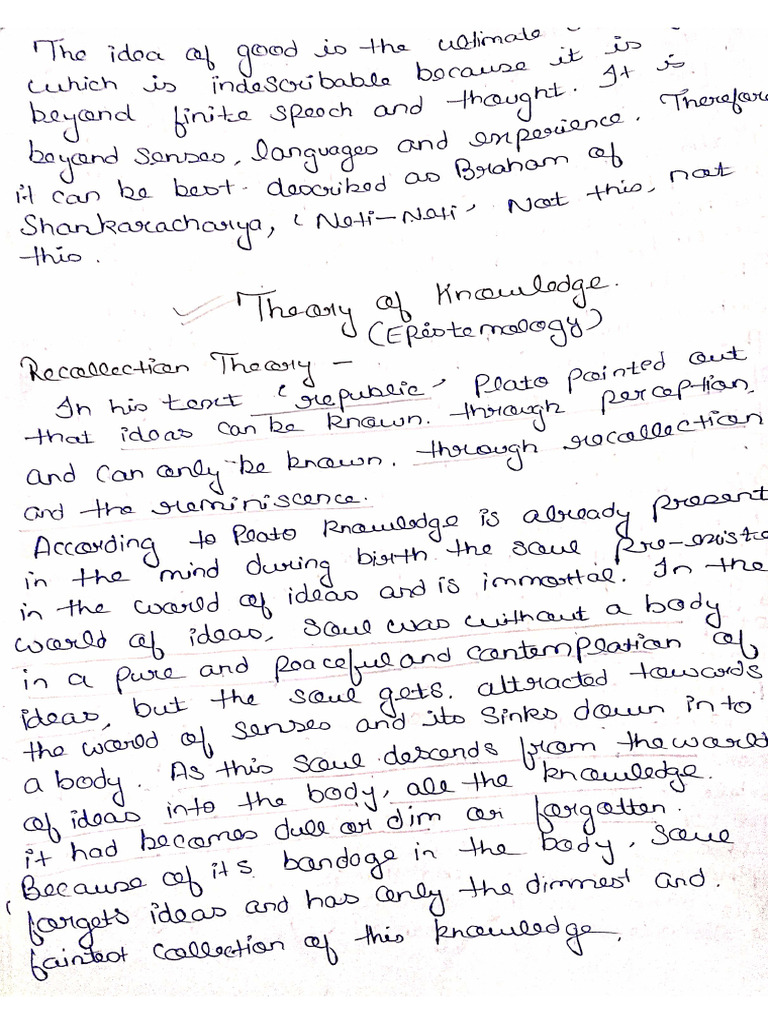 The idea of good is the ultimate
which is indescribable because it is
beyond finite speech and thought. It is
beyond senses, languages and experience. Therefore
it can be best described as Braham of
Shankaracharya, 'Neti-Neti' Not this, not
this.
Theory of Knowledge.
(Epistemology)
Recollection Theory -
In his text 'republic' Plato pointed out
that ideas can be known. through perception.
and can only be known. through recollection
and the reminiscence.
According to Plato knowledge is already present
in the mind during birth the soul pre-existe
in the world of ideas and is immortal. In the
world of ideas, soul was without a body
in a pure and peaceful and contemplation of
ideas, but the soul gets. attracted towards
the world of senses and its sinks down in to
a body. As this soul descends from the world
of ideas into the body, all the knowledge.
it had becomes dull or dim or forgotten.
Because of its bandage in the body, soul
forgets ideas and has only the dimmest and.
faintest collection of this knowledge.